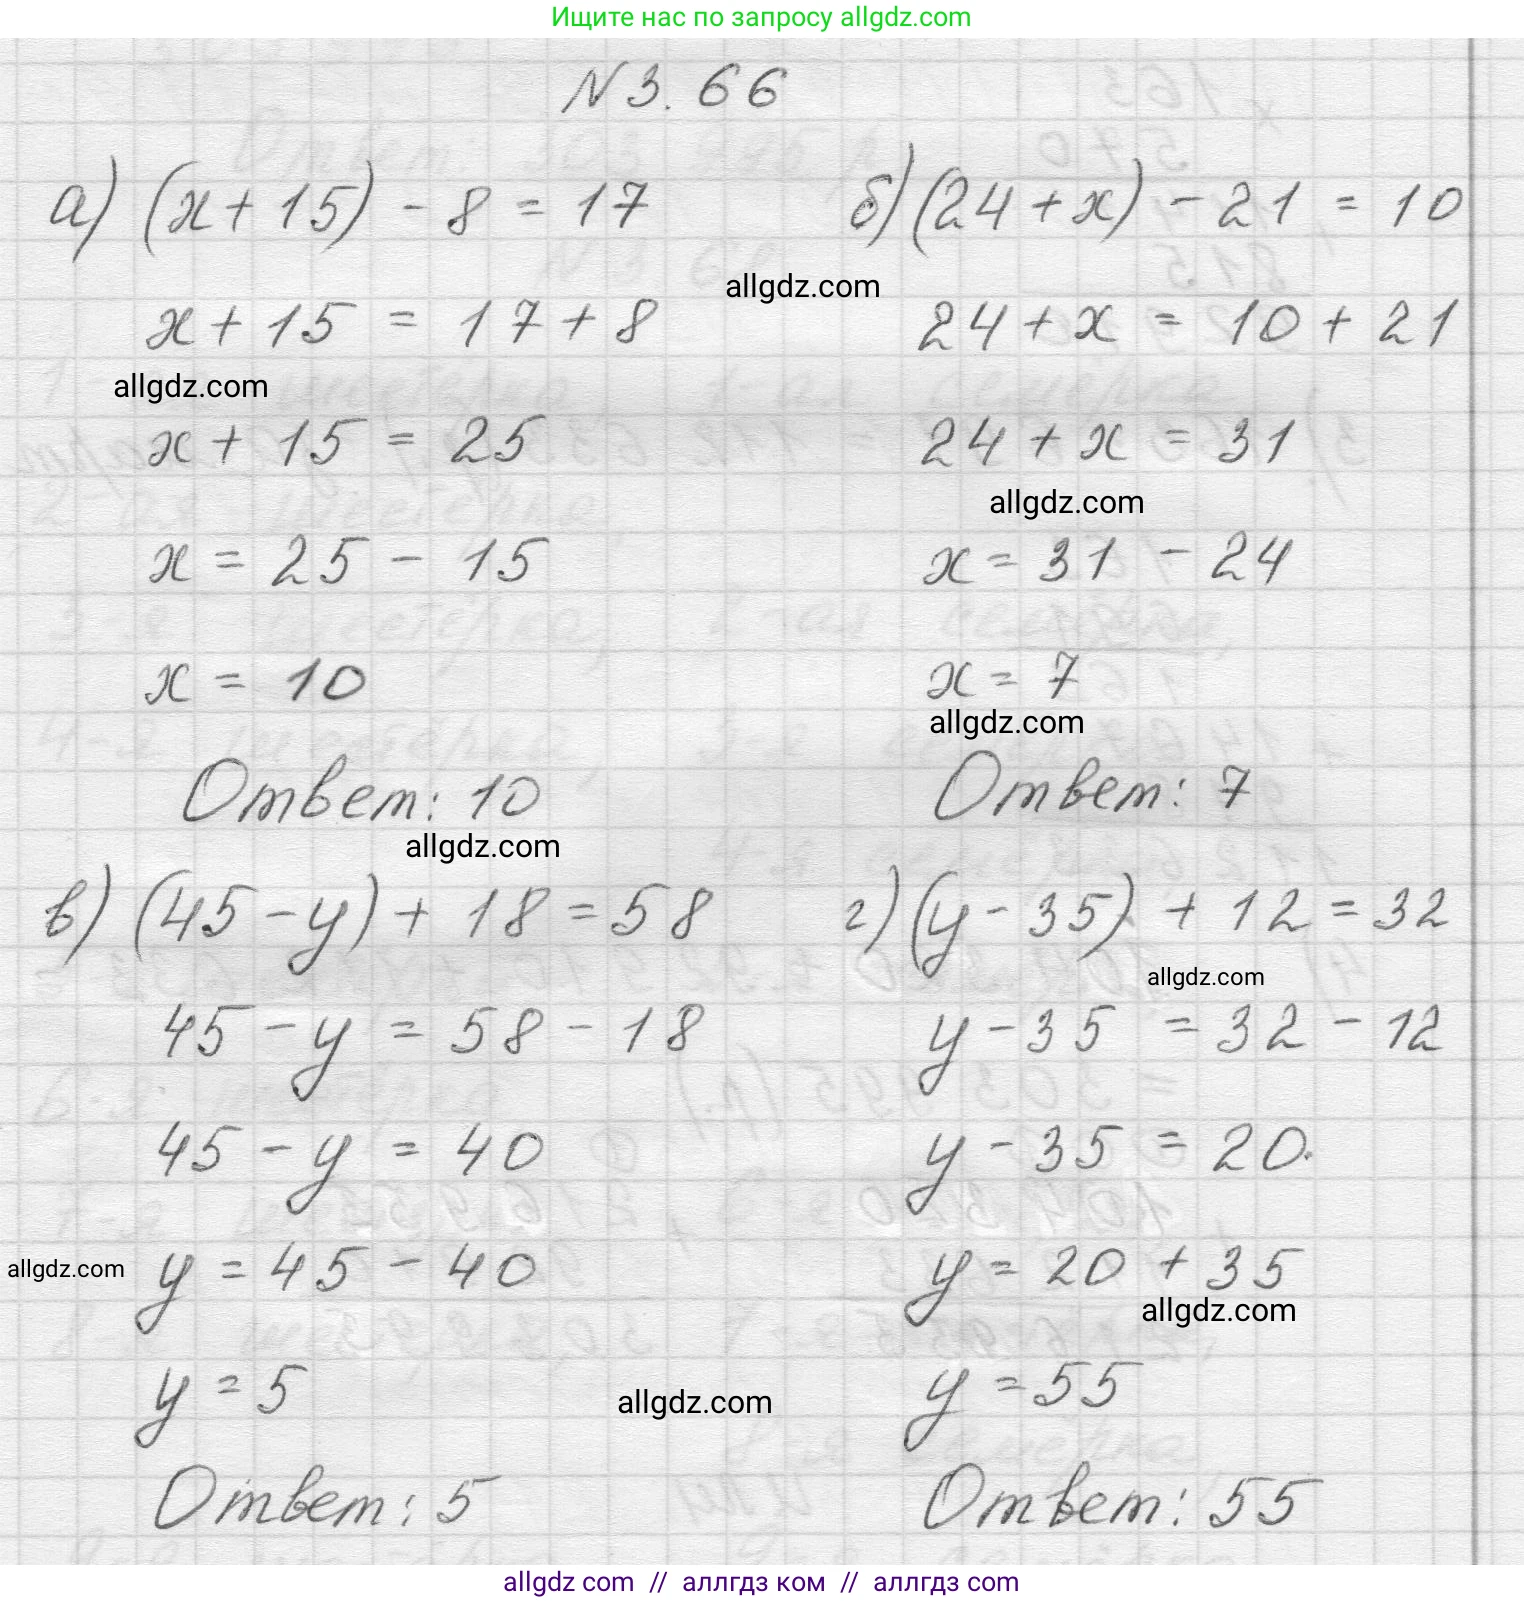 Ищите нас по запросу allgdz.com
N 3.66
а) (x+15) - 8 = 17
x + 15 = 17 + 8
x + 15 = 25
x = 25 - 15
x = 10
Ответ: 10
б) (24 + x) - 21 = 10
24 + x = 10 + 21
24 + x = 31
x = 31 - 24
x = 7
Ответ: 7
в) (45 - y) + 18 = 58
45 - y = 58 - 18
45 - y = 40
y = 45 - 40
y = 5
Ответ: 5
г) (y - 35) + 12 = 32
y - 35 = 32 - 12
y - 35 = 20.
y = 20 + 35
y = 55
Ответ: 55
allgdz.com
allgdz.com
allgdz.com
allgdz.com
allgdz.com
allgdz.com
allgdz.com
allgdz.com
allgdz.com
allgdz com // аллгдз ком // аллгдз com